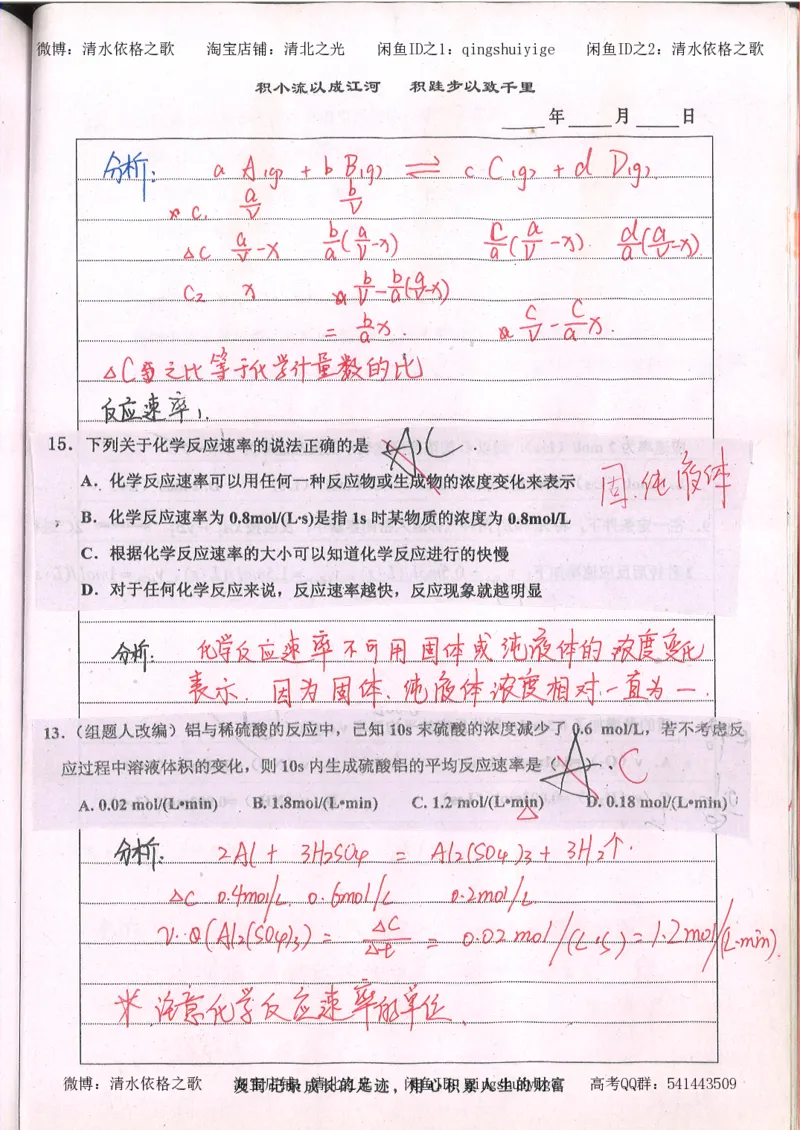 微博：清水依格之歌 淘宝店铺：清北之光 闲鱼ID之1：qingshuiyige 闲鱼ID之2：清水依格之歌
积小流以成江河 积跬步以致千里
年 月 日
分析： a A(g) + b B(g) ⇌ c C(g) + d D(g)
C₁ a/V b/V
△C a/V-x b/a(a/V-x) c/a(a/V-x) d/a(a/V-x)
C₂ x b/V-b/a(a/V-x)
= b/a x. c/V-c/a x.
△C之比等于化学计量数的比
反应速率1.
15. 下列关于化学反应速率的说法正确的是（A）C
A．化学反应速率可以用任何一种反应物或生成物的浓度变化来表示 固.纯液体
B．化学反应速率为 0.8mol/(L·s)是指 1s 时某物质的浓度为 0.8mol/L
C．根据化学反应速率的大小可以知道化学反应进行的快慢
D．对于任何化学反应来说，反应速率越快，反应现象就越明显
分析: 化学反应速率不可用固体或纯液体的浓度变化
表示. 因为固体、纯液体浓度相对一直为一.
13.（组题人改编）铝与稀硫酸的反应中，已知 10s 末硫酸的浓度减少了 0.6 mol/L，若不考虑反
应过程中溶液体积的变化，则 10s 内生成硫酸铝的平均反应速率是（A）、C
A. 0.02 mol/(L•min) B. 1.8mol/(L•min) C. 1.2 mol/(L•min) D. 0.18 mol/(L•min)
△
分析. 2Al + 3H₂SO₄ = Al₂(SO₄)₃ + 3H₂↑.
△C 0.4mol/L. 0.6mol/L 0.2mol/L.
V(Al₂(SO₄)₃) = △C/△t = 0.02 mol/(L·s) = 1.2 mol/(L·min).
* 注意化学反应速率的单位.
微博：清水依格之歌 淘宝店铺：清北之光 闲鱼ID：qingshuiyige 高考QQ群：541443509
记录成长的足迹，用心积累人生的财富